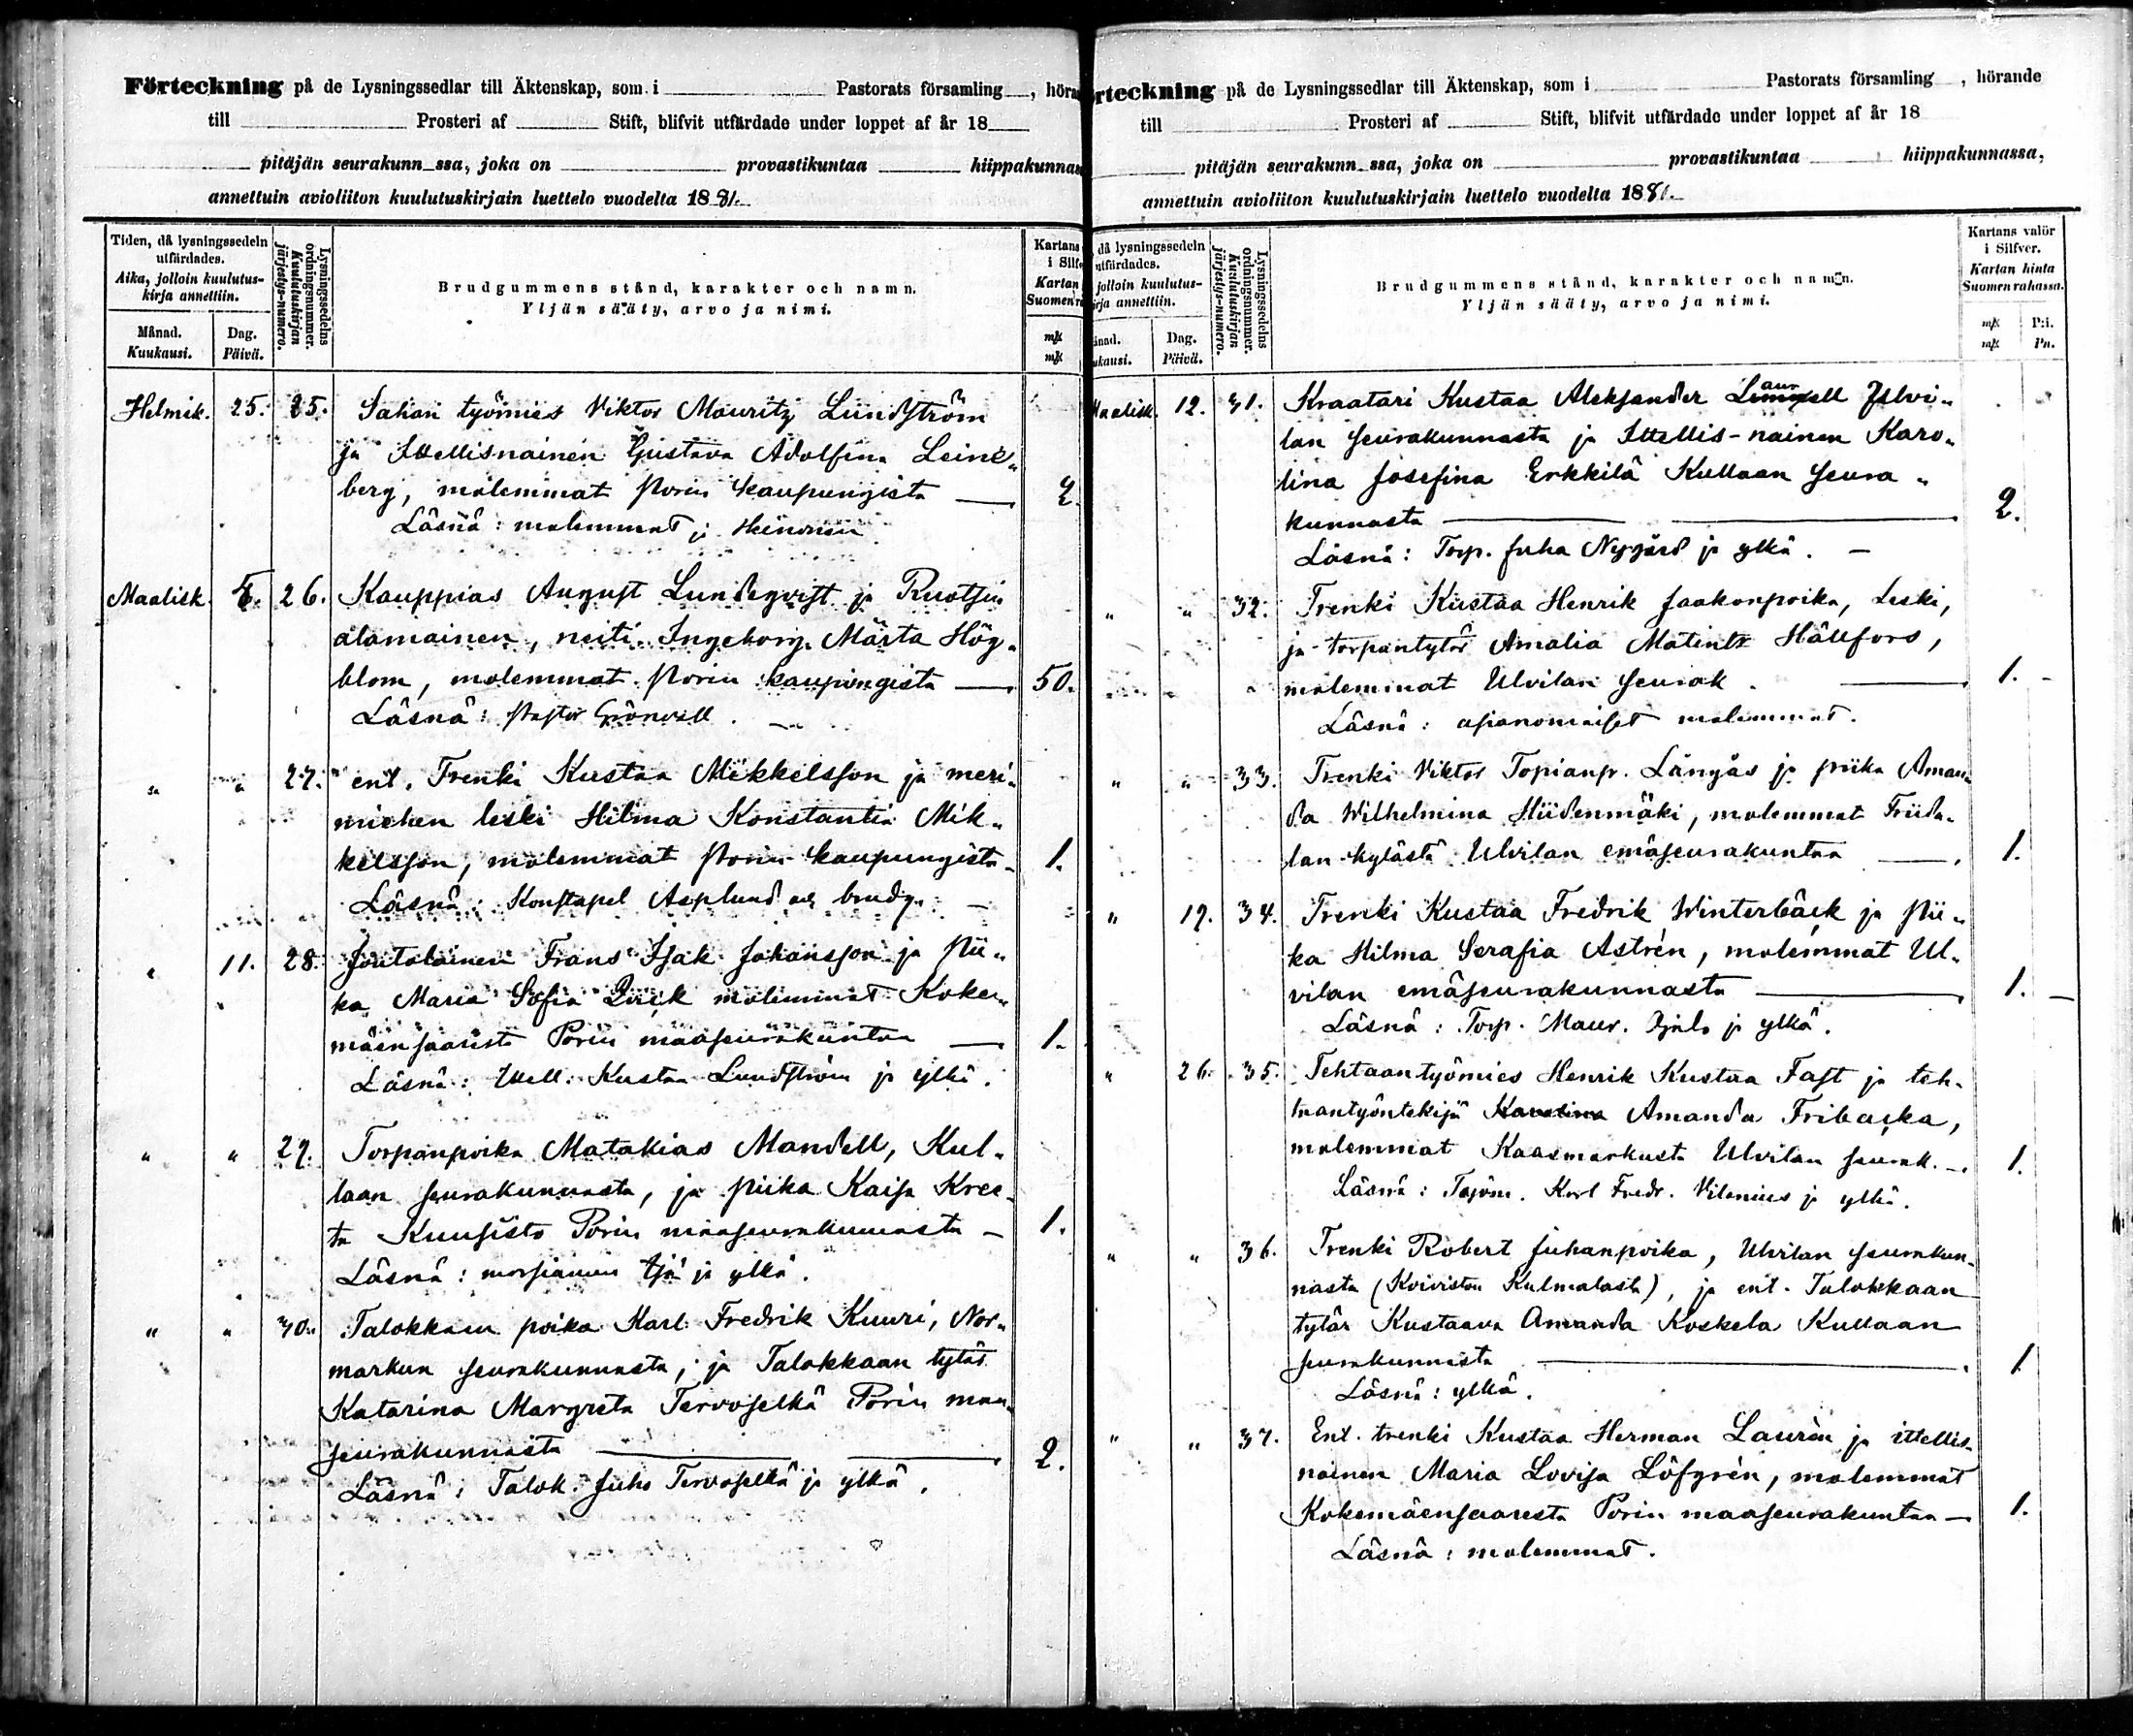 Förteckning på de Lysningssedlar till Äktenskap, som i Pastorats församling , höra
till Prosteri af Stift, blifvit utfärdade under loppet af år 18
pitäjän seurakunn ssa, joka on provastikuntaa hiippakunnas
annettuin avioliiton kuulutuskirjain luettelo vuodelta 1881.
Tiden, då lysningssedeln utfärdades.
Aika, jolloin kuulutus-kirja annettiin.
Månad. Kuukausi.
Dag. Päivä.
Lysningssedelns ordningsnummer. Kuulutuskirjan järjestys-numero.
Brudgummens stånd, karakter och namn.
Yljän sääty, arvo ja nimi.
Kartans i Silf
Kartan Suomen ra
mk
mk
Helmik. 25. 25. Sahan työmies Viktor Mauritz Lundström
ja Ittellisnainen Gustava Adolfina Leine"
berg, molemmat Porin kaupungista — 2.
Läsnä: molemmat j.
Maalisk. 26. Kauppias August Lundeqvist ja Ruotsin
alamainen, neiti Ingeborg Märta Hög"
blom, molemmat Porin kaupungista — 50.
Läsnä: Pastor Grönvall. —
" " 27. ent. Trenki Kustaa Mikkelsson ja meri"
miehen leski Hilma Konstantia Mik"
kelsson, molemmat Porin kaupungista 1.
Läsnä: Konstapel Asplund och brudg. —
" 11. 28. Joutolainen Frans Isak Johansson ja Pii"
ka Maria Sofia molemmat Koke"
mäensaarista Porin maaseurakuntaa — 1.
Läsnä: Kustaa Lundström ja ylkä.
" " 29. Torpanpoika Matakias Mandell, Kul"
laan seurakunnasta, ja piika Kaisa Kree"
ta Kuusisto Porin maaseurakunnasta — 1.
Läsnä: morsiamen isä ja ylkä.
" " 30. Talokkaan poika Karl Fredrik Kuuri, Nor"
markun seurakunnasta, ja Talokkaan tytär
Katarina Margreta Tervoselkä Porin maa"
seurakunnasta — 2.
Läsnä: Talok. Juho Tervoselkä ja ylkä.
rteckning på de Lysningssedlar till Äktenskap, som i Pastorats församling , hörande
till Prosteri af Stift, blifvit utfärdade under loppet af år 18
pitäjän seurakunn ssa, joka on provastikuntaa hiippakunnassa,
annettuin avioliiton kuulutuskirjain luettelo vuodelta 1881.
då lysningssedeln utfärdades.
jolloin kuulutus-kirja annettiin.
ånad. ukausi.
Dag. Päivä.
Lysningssedelns ordningsnummer. Kuulutuskirjan järjestys-numero.
Brudgummens stånd, karakter och namn.
Yljän sääty, arvo ja nimi.
Kartans valör i Silfver.
Kartan hinta Suomen rahassa.
mk P:i.
mk Pn.
Maalisk. 12. 31. Kraatari Kustaa Aleksander Laurell
lan seurakunnasta ja Ittellis-nainen Karo"
lina Josefina Erkkilä Kullaan seura"
kunnasta — 2.
Läsnä: Torp. Juha Nygård ja ylkä. —
" " 32. Trenki Kustaa Henrik Jaakonpoika, Leski,
ja torpantytär Amalia Matintr Hällfors,
molemmat Ulvilan seurak. — 1. -
Läsnä: asianomaiset molemmat.
" " 33. Trenki Viktor Topianp. Långås ja piika Aman"
da Wilhelmina Hiidenmäki, molemmat Friida"
lan kylästä Ulvilan emäseurakuntaa — 1.
" 19. 34. Trenki Kustaa Fredrik Winterbäck ja Pii"
ka Hilma Serafia Astrén, molemmat Ul"
vilan emäseurakunnasta — 1. —
Läsnä: Torp. Maur. ja ylkä.
" 26. 35. Tehtaantyömies Henrik Kustaa Fast ja teh"
taantyöntekijä Karolina Amanda Fribacka,
molemmat Kaasmarkusta Ulvilan seurak. — 1.
Läsnä: Karl Fredr. Vilenius ja ylkä.
" " 36. Trenki Robert Juhanpoika, Ulvilan seurakun"
nasta (Koiviston Kulmalasta), ja ent. Talokkaan
tytär Kustaava Amanda Koskela Kullaan
seurakunnasta — 1
Läsnä: ylkä.
" " 37. Ent. trenki Kustaa Herman Laurén ja ittellis"
nainen Maria Lovisa Löfgrén, molemmat
Kokemäensaaresta Porin maaseurakuntaa — 1.
Läsnä: molemmat.